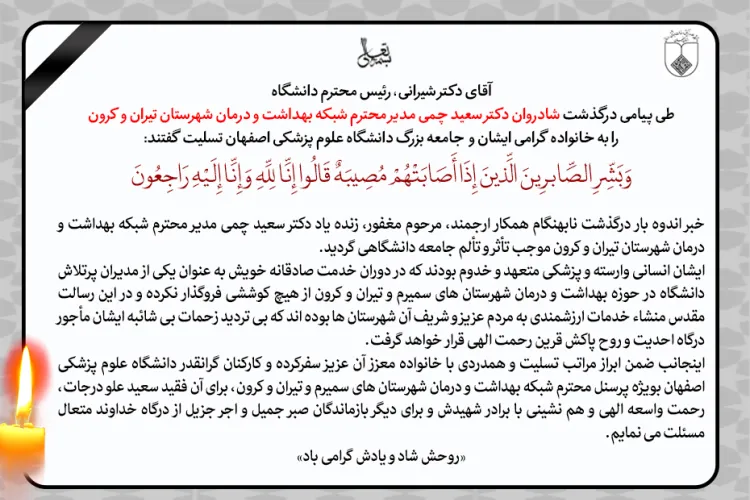 بسمه تعالی
آقای دکتر شیرانی، رئیس محترم دانشگاه
طی پیامی درگذشت شادروان دکتر سعید چمی مدیر محترم شبکه بهداشت و درمان شهرستان تیران و کرون
را به خانواده گرامی ایشان و جامعه بزرگ دانشگاه علوم پزشکی اصفهان تسلیت گفتند:
وَبَشِّرِ الصَّابِرِينَ الَّذِينَ إِذَا أَصَابَتْهُمْ مُصِيبَةٌ قَالُوا إِنَّا لِلَّهِ وَإِنَّا إِلَيْهِ رَاجِعُونَ
خبر اندوه بار درگذشت نابهنگام همکار ارجمند، مرحوم مغفور، زنده یاد دکتر سعید چمی مدیر محترم شبکه بهداشت و
درمان شهرستان تیران و کرون موجب تأثر و تألم جامعه دانشگاهی گردید.
ایشان انسانی وارسته و پزشکی متعهد و خدوم بودند که در دوران خدمت صادقانه خویش به عنوان یکی از مدیران پرتلاش
دانشگاه در حوزه بهداشت و درمان شهرستان های سمیرم و تیران و کرون از هیچ کوششی فروگذار نکرده و در این رسالت
مقدس منشاء خدمات ارزشمندی به مردم عزیز و شریف آن شهرستان ها بوده اند که بی تردید زحمات بی شائبه ایشان مأجور
درگاه احدیت و روح پاکش قرین رحمت الهی قرار خواهد گرفت.
اینجانب ضمن ابراز مراتب تسلیت و همدردی با خانواده معزز آن عزیز سفرکرده و کارکنان گرانقدر دانشگاه علوم پزشکی
اصفهان بویژه پرسنل محترم شبکه بهداشت و درمان شهرستان های سمیرم و تیران و کرون، برای آن فقید سعید علو درجات،
رحمت واسعه الهی و هم نشینی با برادر شهیدش و برای دیگر بازماندگان صبر جمیل و اجر جزیل از درگاه خداوند متعال
مسئلت می نمایم.
«روحش شاد و یادش گرامی باد»